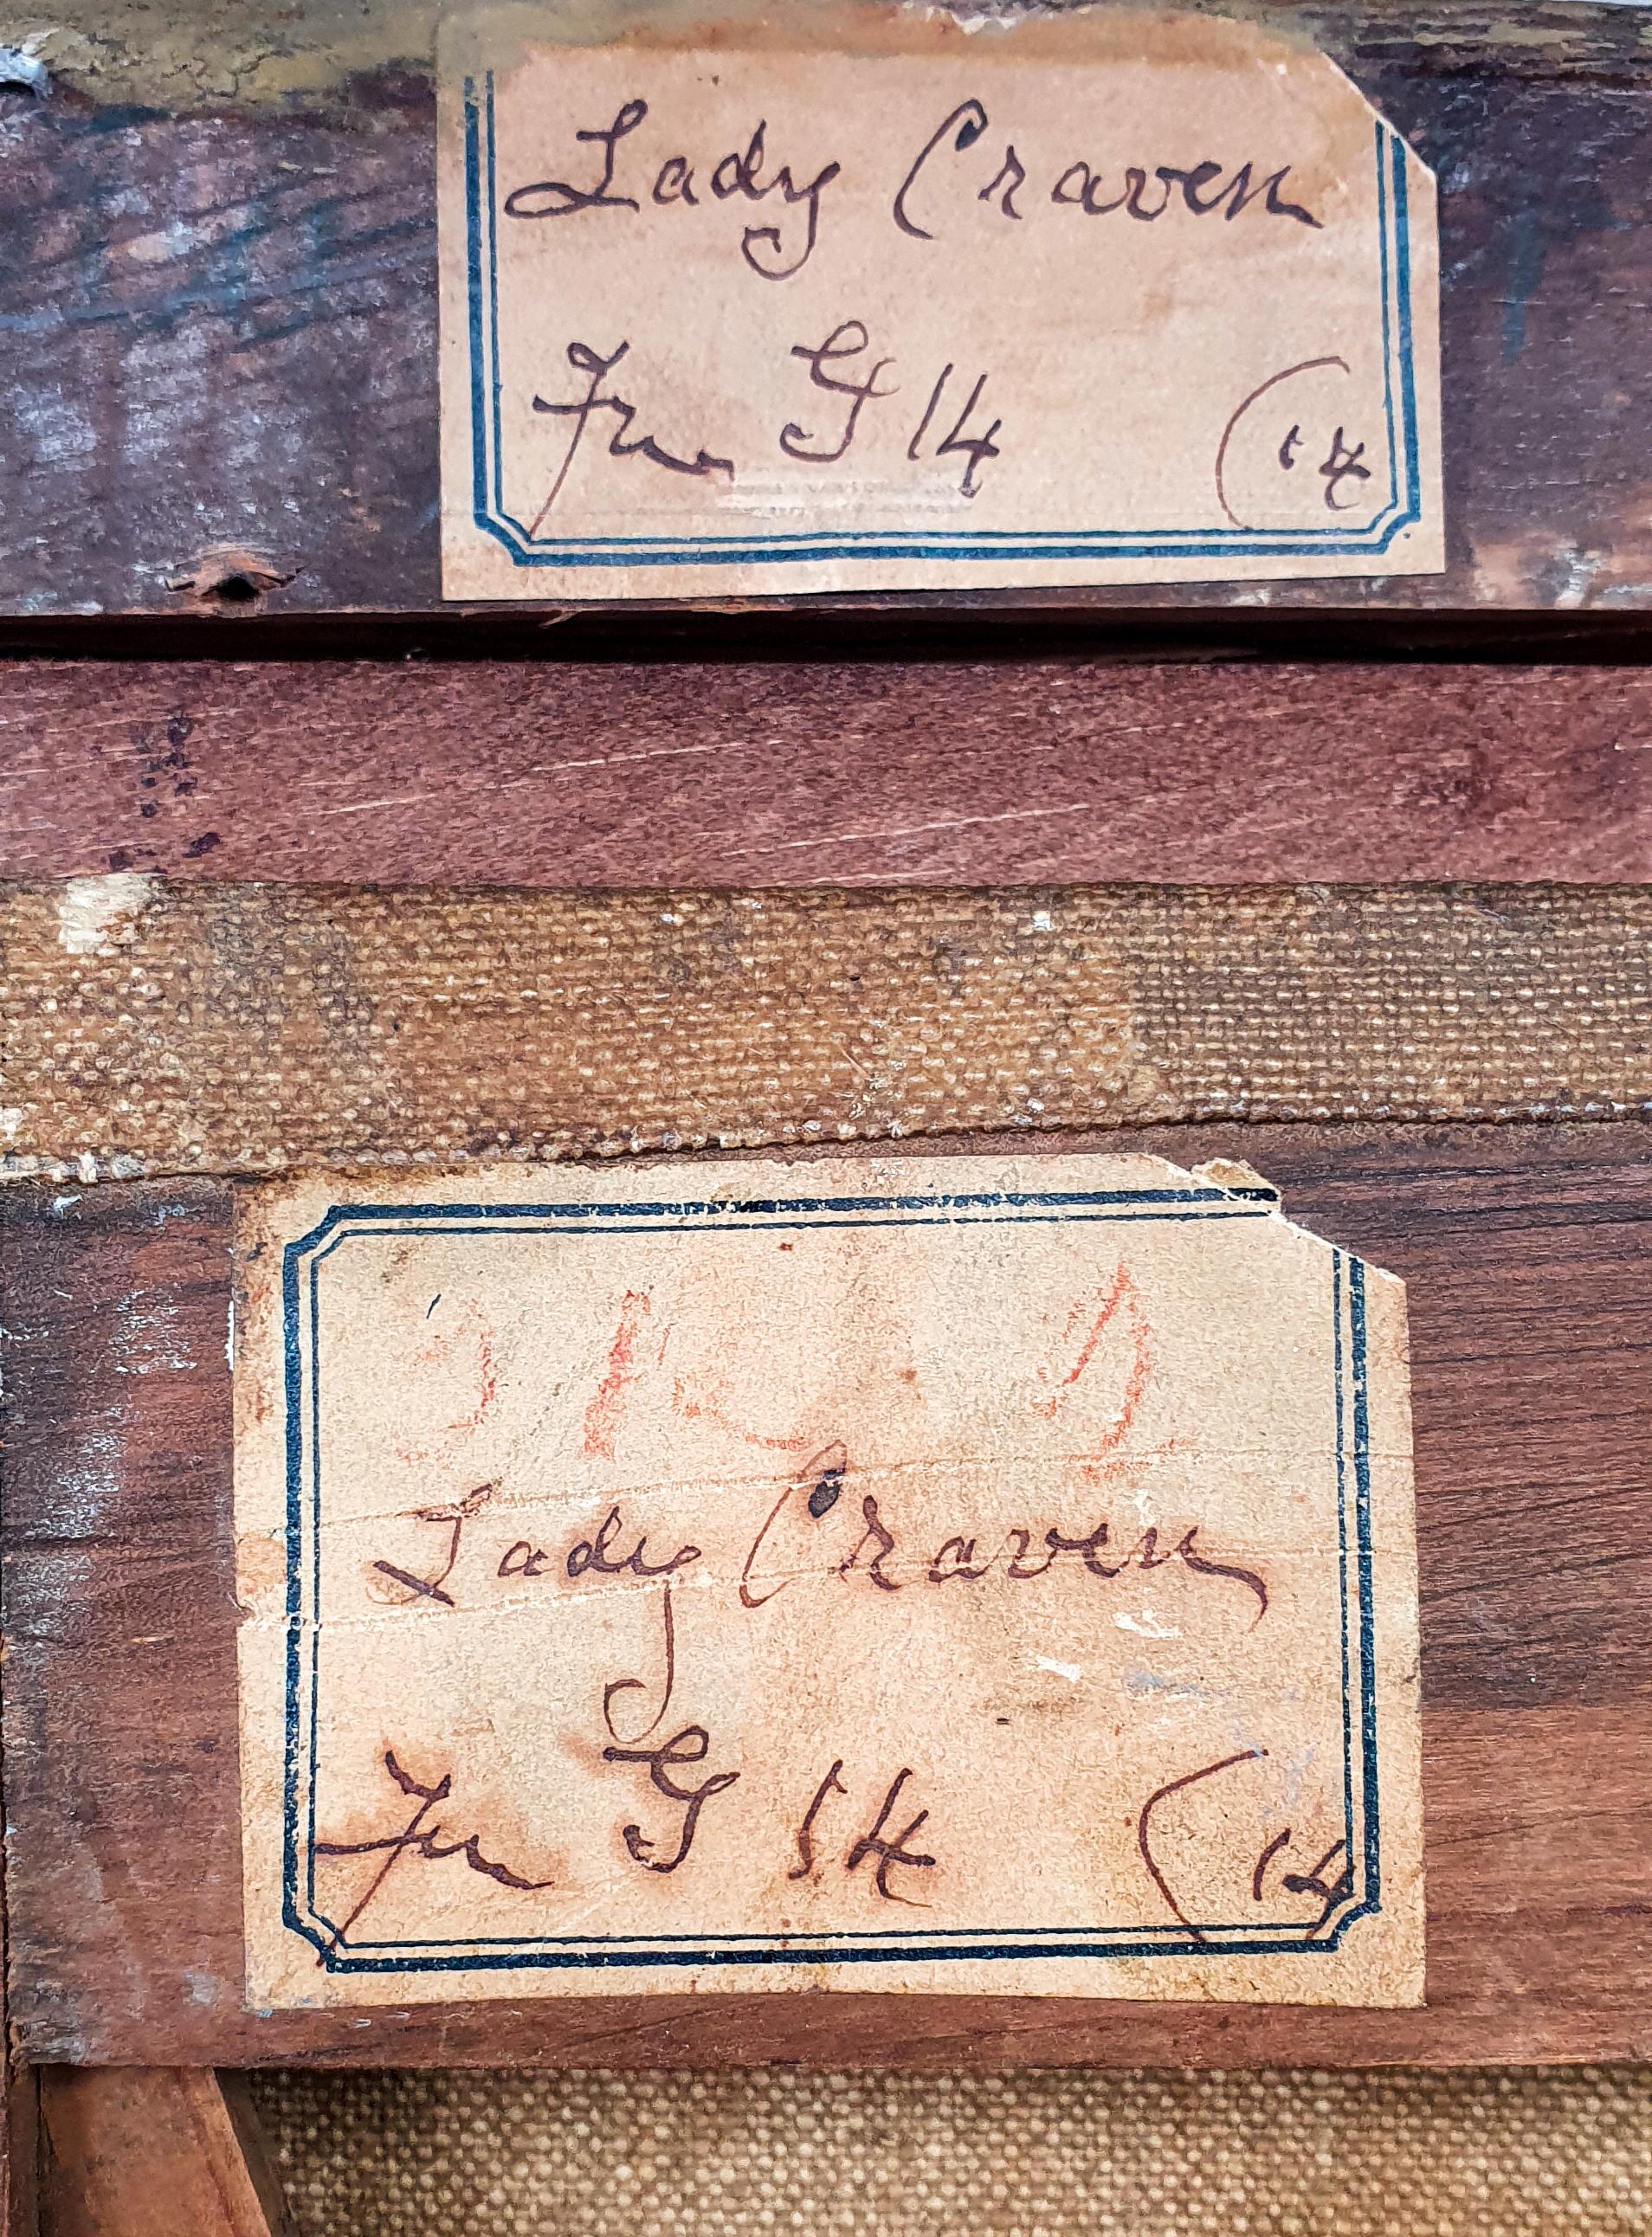 Lady Craven
Fr G 14 (14
Lady Craven
Fr G 14 (14